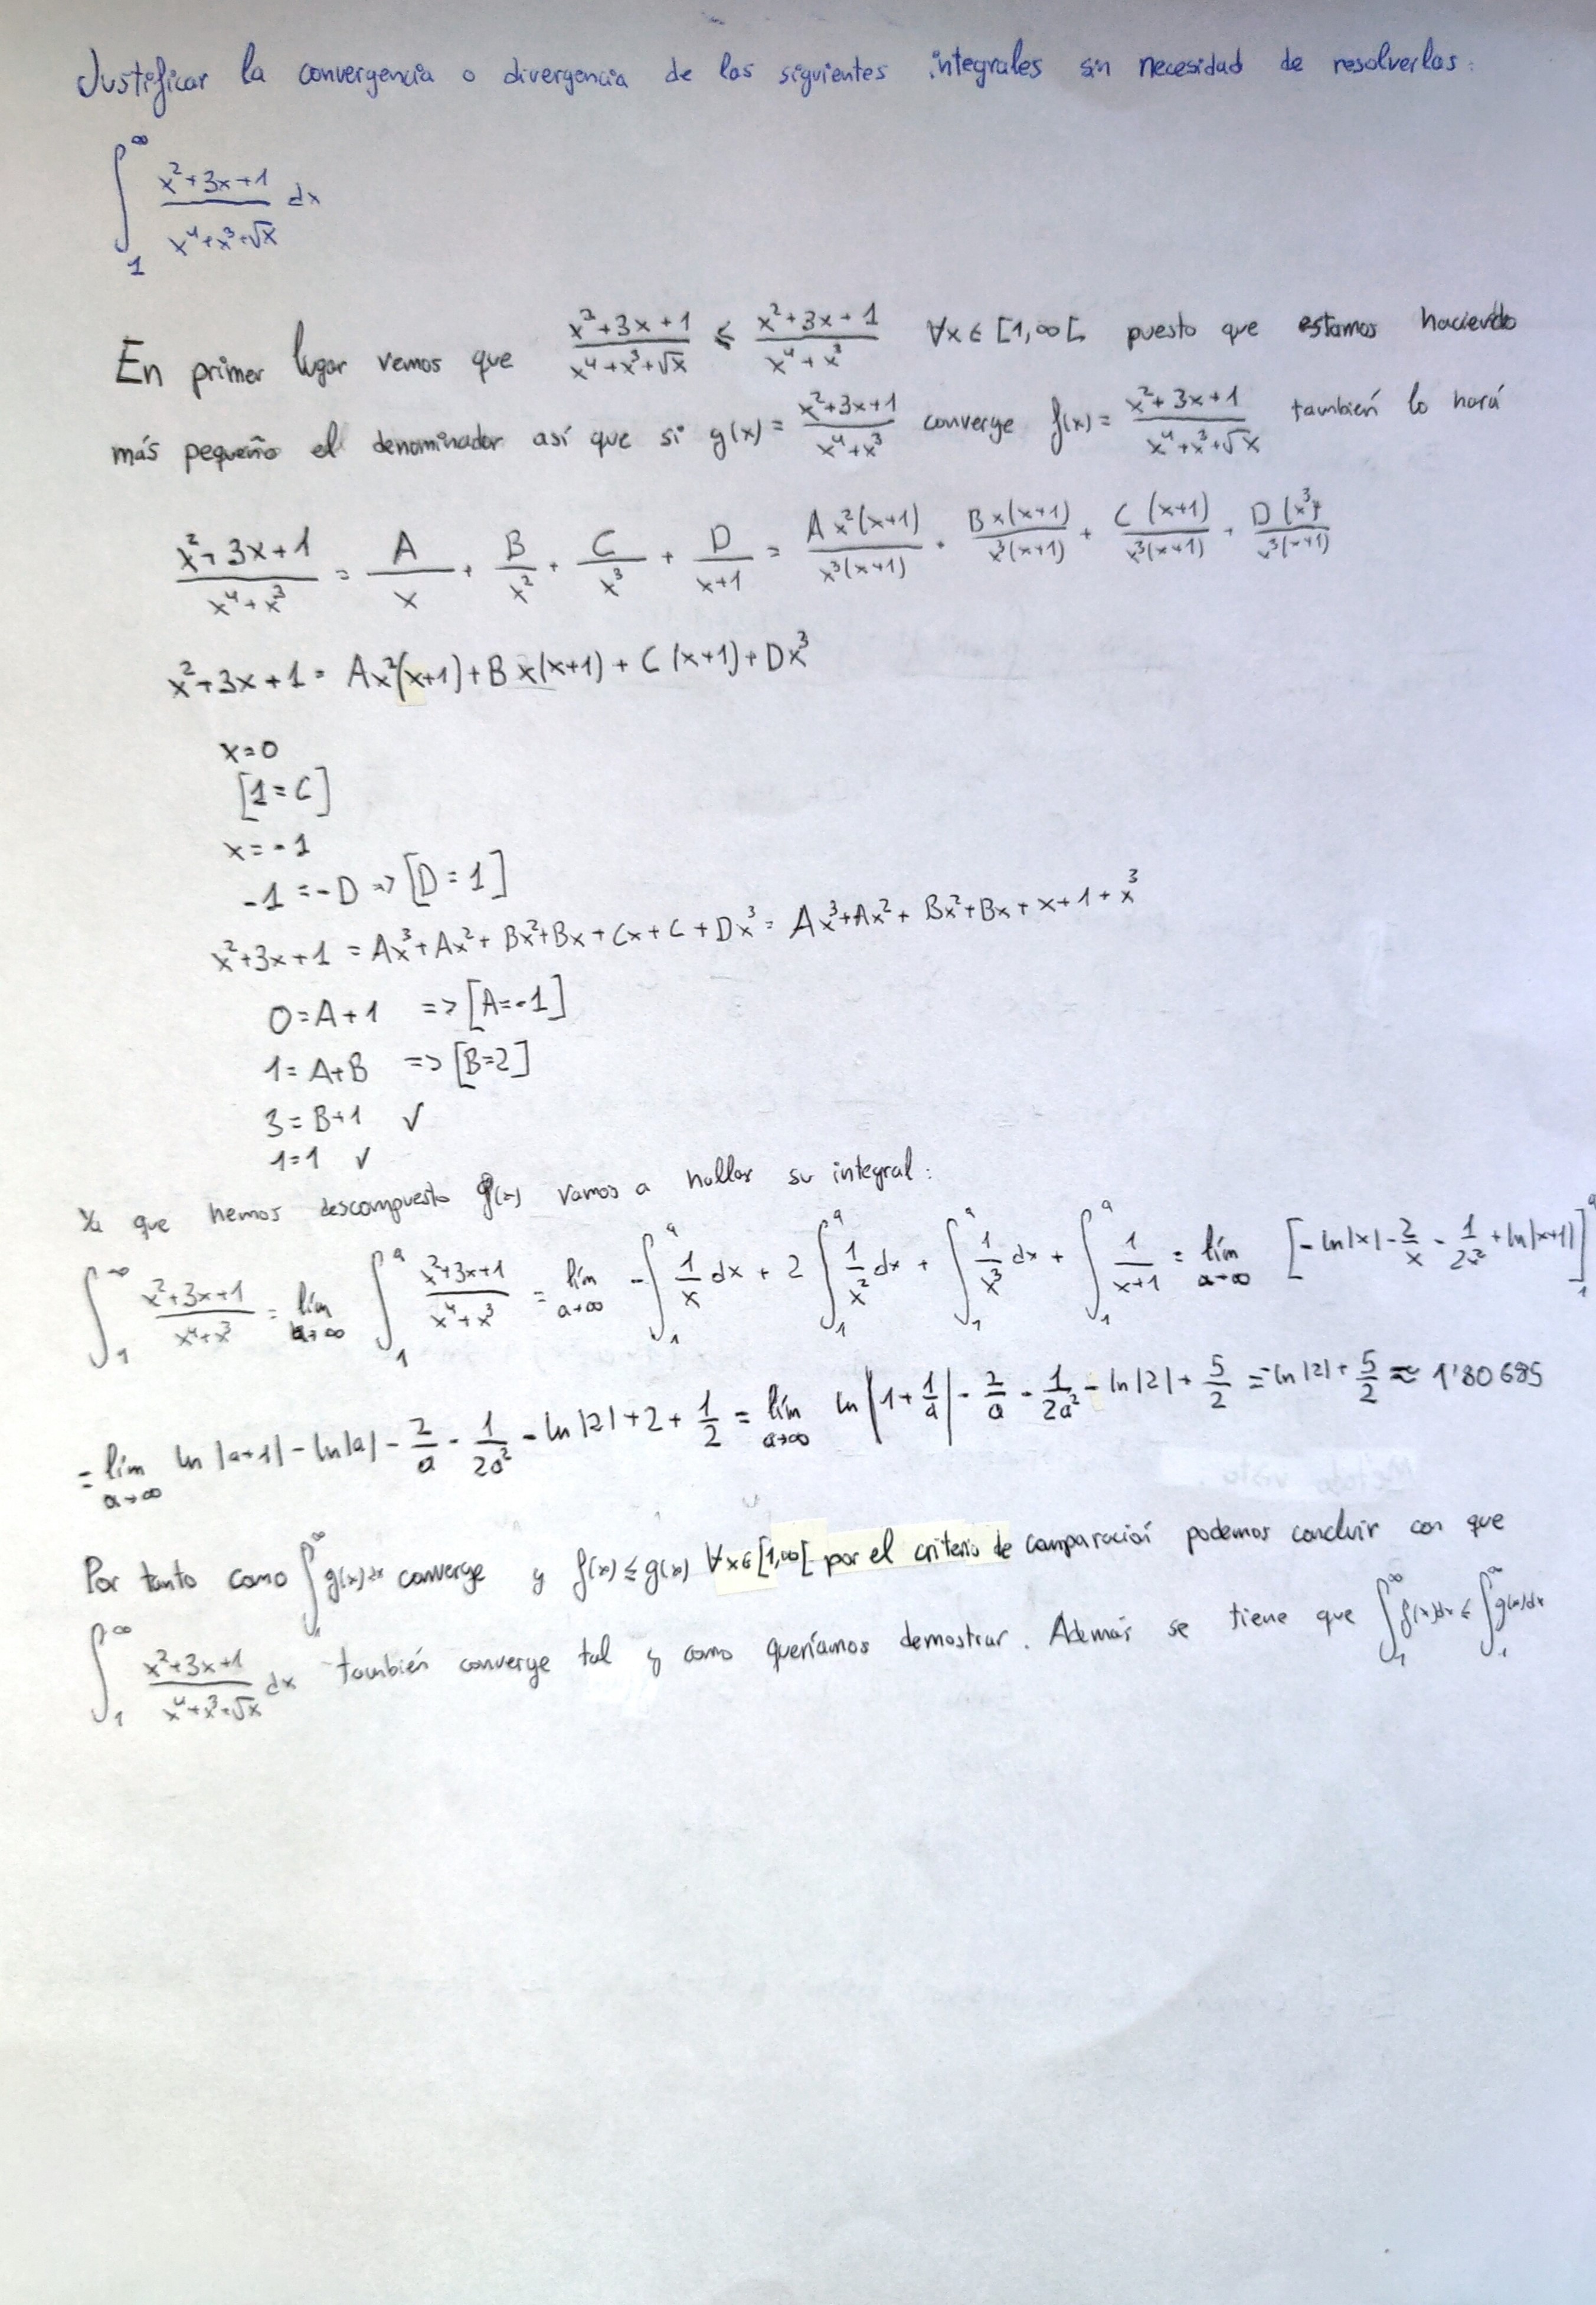 Justificar la convergencia o divergencia de las siguientes integrales sin necesidad de resolverlas:
∫₁^∞ (x²+3x+1)/(x⁴+x³+√x) dx
En primer lugar vemos que (x²+3x+1)/(x⁴+x³+√x) ≤ (x²+3x+1)/(x⁴+x³) ∀x∈[1,∞[ puesto que estamos haciendo
más pequeño el denominador así que si g(x)= (x²+3x+1)/(x⁴+x³) converge f(x)= (x²+3x+1)/(x⁴+x³+√x) también lo hará
(x²+3x+1)/(x⁴+x³) = A/x + B/x² + C/x³ + D/(x+1) = Ax²(x+1)/(x³(x+1)) + Bx(x+1)/(x³(x+1)) + C(x+1)/(x³(x+1)) + D(x³)/(x³(x+1))
x²+3x+1 = Ax²(x+1)+Bx(x+1)+C(x+1)+Dx³
x=0
[1=C]
x=-1
-1=-D => [D=1]
x²+3x+1 = Ax³+Ax²+Bx²+Bx+Cx+C+Dx³ = Ax³+Ax²+Bx²+Bx+x+1+x³
0=A+1 => [A=-1]
1=A+B => [B=2]
3=B+1 ✓
1=1 ✓
Ya que hemos descompuesto g(x) vamos a hallar su integral:
∫₁^∞ (x²+3x+1)/(x⁴+x³) = lím a→∞ ∫₁^a (x²+3x+1)/(x⁴+x³) = lím a→∞ -∫₁^a 1/x dx + 2∫₁^a 1/x² dx + ∫₁^a 1/x³ dx + ∫₁^a 1/(x+1) = lím a→∞ [-ln|x| - 2/x - 1/2x² + ln|x+1|]₁^a
= lím a→∞ ln|a+1| - ln|a| - 2/a - 1/2a² - ln|2| + 2 + 1/2 = lím a→∞ ln|1+1/a| - 2/a - 1/2a² - ln|2| + 5/2 = -ln|2| + 5/2 ≈ 1'80685
Por tanto como ∫₁^∞ g(x)dx converge y f(x) ≤ g(x) ∀x∈[1,∞[ por el criterio de comparación podemos concluir con que
∫₁^∞ (x²+3x+1)/(x⁴+x³+√x) dx también converge tal y como queríamos demostrar. Además se tiene que ∫₁^∞ f(x)dx ≤ ∫₁^∞ g(x)dx